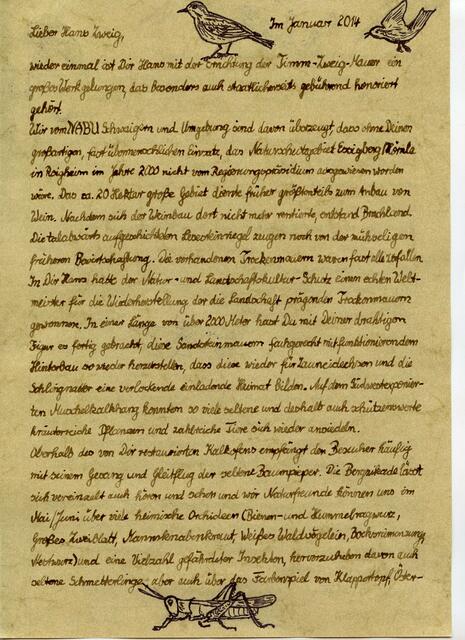 Im Januar 2014
Lieber Hans Zweig,
wieder einmal ist Dir Hans mit der Errichtung der Timm-Zweig-Mauer ein
großes Werk gelungen, das besonders auch staatlicherseits gebührend honoriert
gehört.
Wir vom NABU Schwaigern und Umgebung sind davon überzeugt, dass ohne Deinen
großartigen, fast übermenschlichen Einsatz, das Naturschutzgebiet Essigberg/Hörnle
in Roigheim im Jahre 2000 nicht vom Regierungspräsidium ausgewiesen worden
wäre. Das ca. 20 Hektar große Gebiet diente früher größtenteils zum Anbau von
Wein. Nachdem sich der Weinbau dort nicht mehr rentierte, entstand Brachland.
Die talabwärts aufgeschichteten Lesesteinriegel zeugen noch von der mühseligen
früheren Bewirtschaftung. Die vorhandenen Trockenmauern waren fast alle zerfallen.
In Dir Hans hatte der Natur- und Landschaftskultur-Schutz einen echten Welt-
meister für die Wiederherstellung der die Landschaft prägenden Trockenmauern
gewonnen. In einer Länge von über 2000 Meter hast Du mit Deiner drahtigen
Figur es fertig gebracht, diese Sandsteinmauern fachgerecht mit funktionierendem
Hinterbau so wieder herzustellen, dass diese wieder für Zauneidechsen und die
Schlingnatter eine verlockende einladende Heimat bilden. Auf dem Südwestexponier-
ten Muschelkalkhang konnten so viele seltene und deshalb auch schützenswerte
kräuterreiche Pflanzen und zahlreiche Tiere sich wieder ansiedeln.
Oberhalb des von Dir restaurierten Kalkofens empfängt den Besucher häufig
mit seinem Gesang und Gleitflug der seltene Baumpieper. Die Bergzikade lässt
sich vereinzelt auch hören und sehen und wir Naturfreunde können uns im
Mai/Juni über viele heimische Orchideen (Bienen- und Hummelragwurz,
Großes Zweiblatt, Mannsknabenkraut, Weißes Waldvögelein, Bocksriemenzunge,
Nestwurz) und eine Vielzahl gefährdeter Insekten, hervorzuheben davon auch
seltene Schmetterlinge, aber auch über das Farbenspiel von Klappertopf, Öster-